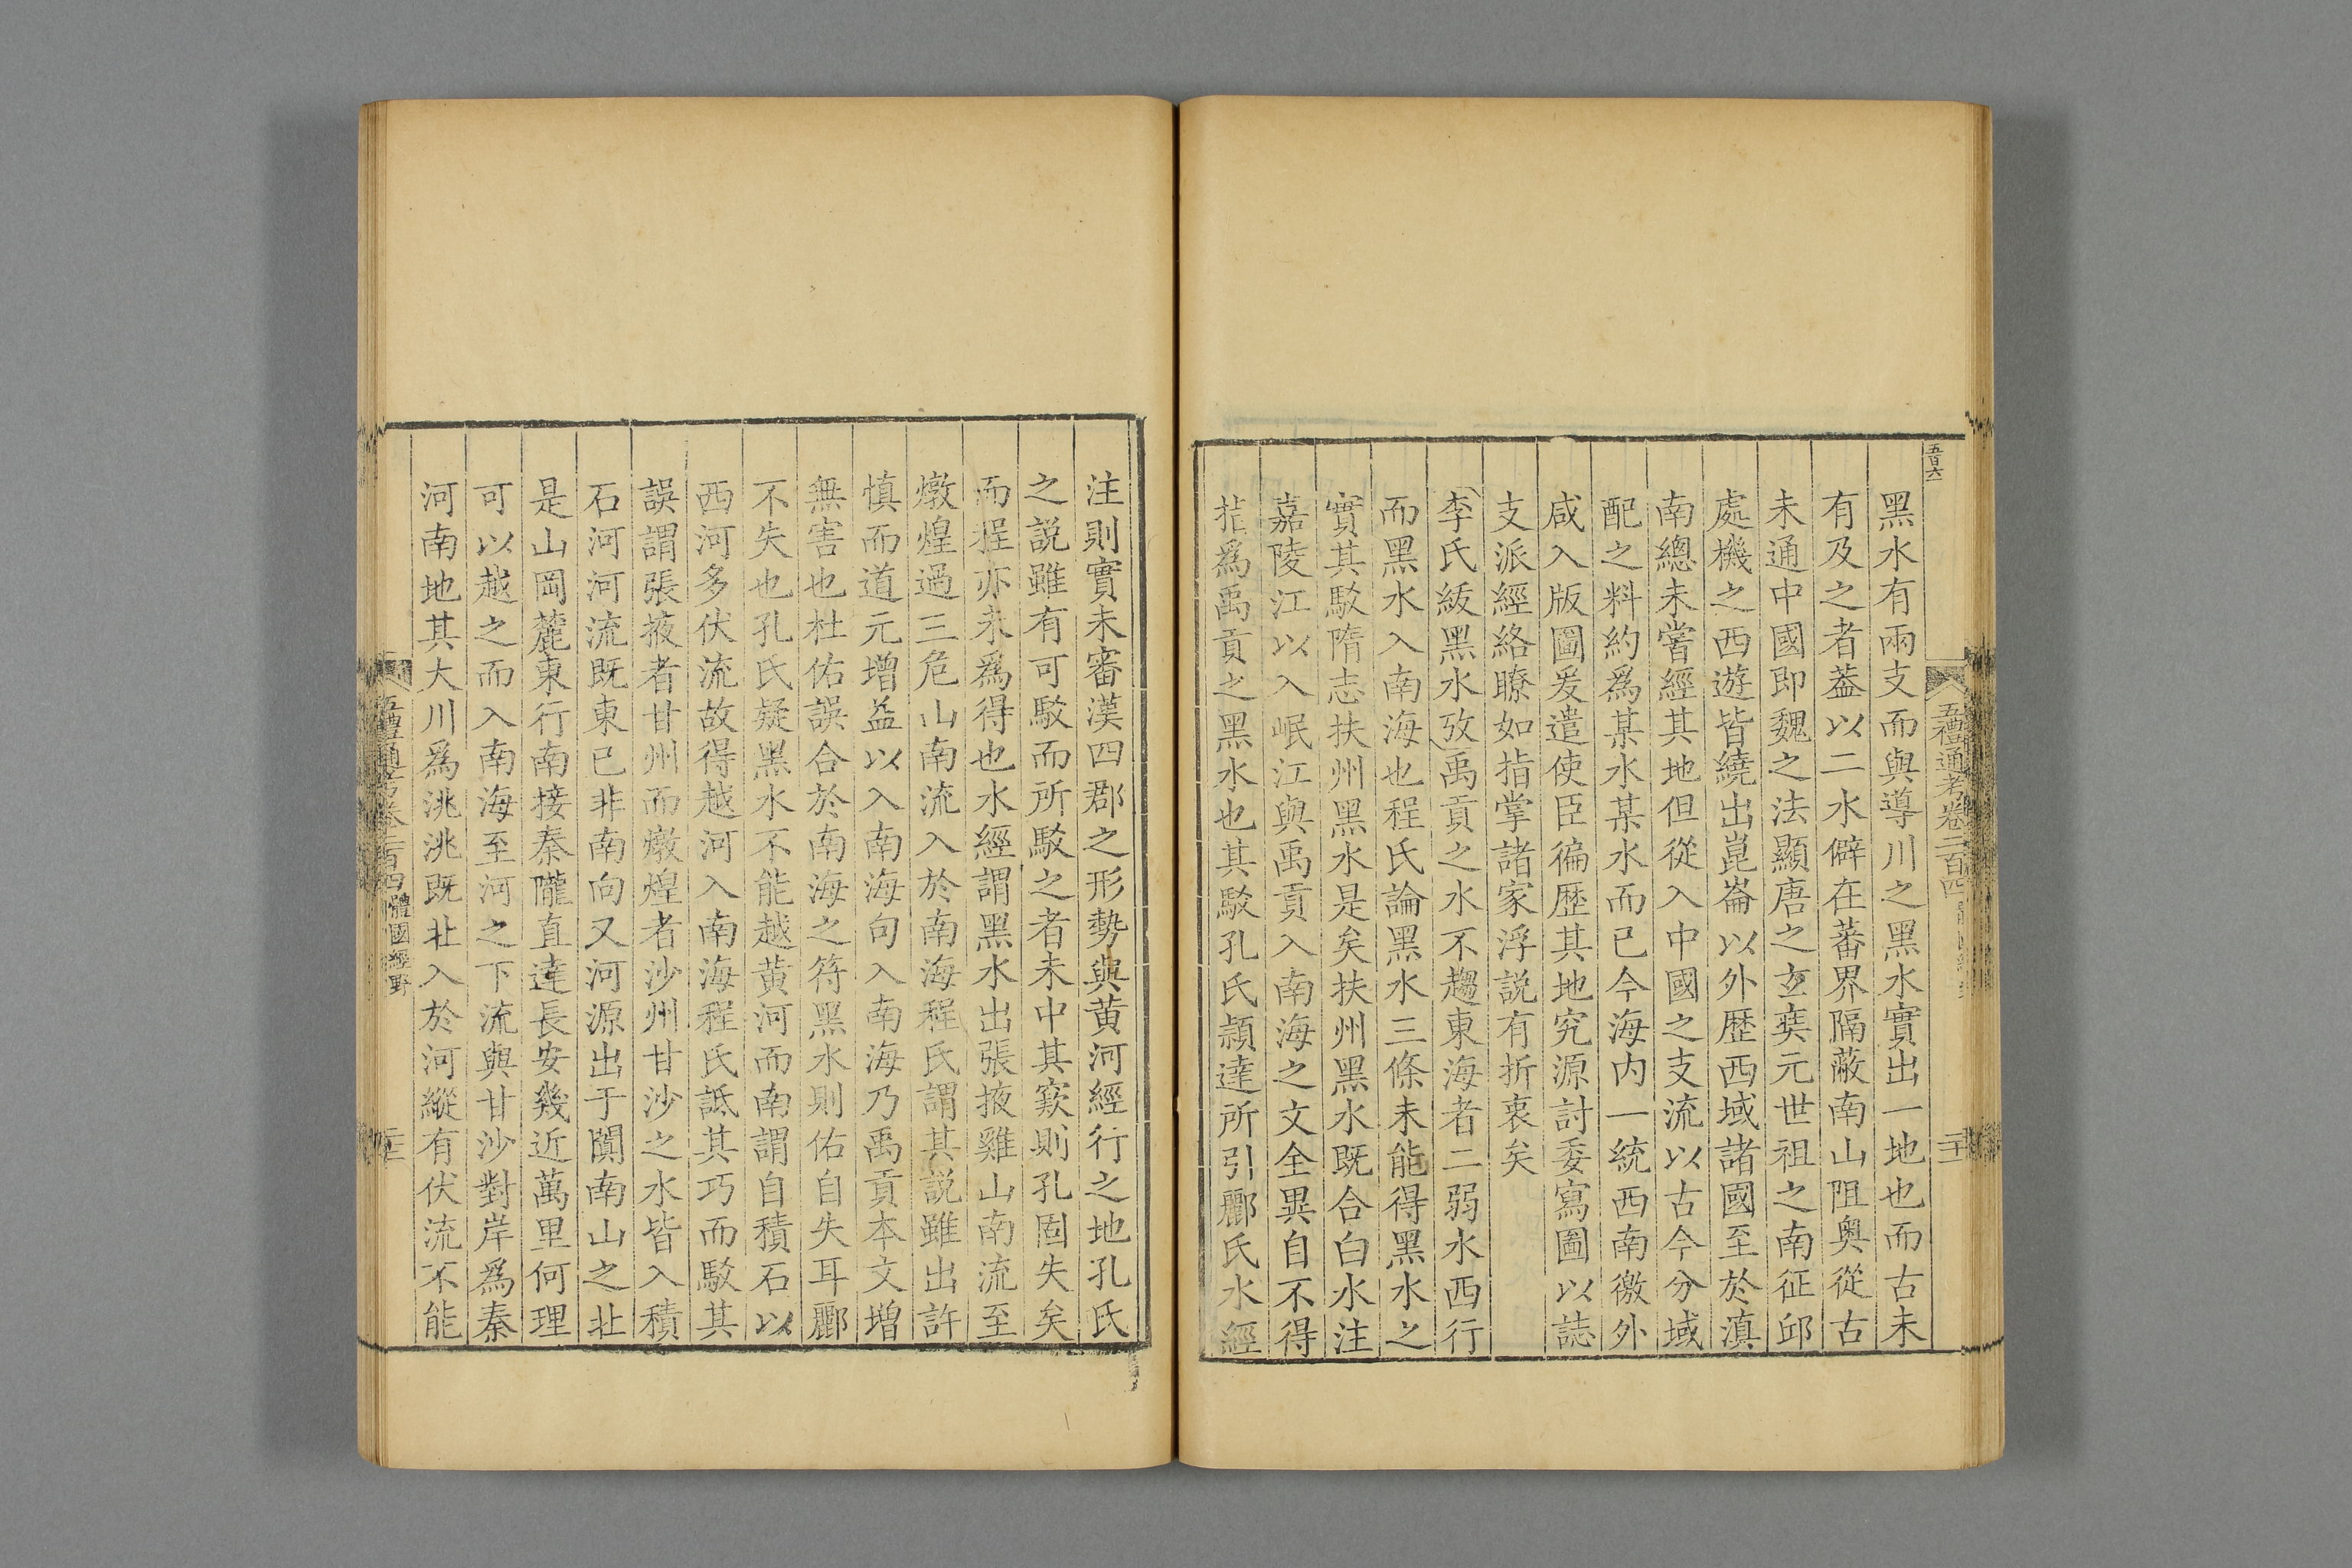 五百六
五禮通考卷二百四
二十一
黑水有兩支而與導川之黑水實出一地也而古未
有及之者葢以二水僻在蕃界隔蔽南山阻奧從古
未通中國即魏之法顯唐之玄奘元世祖之南征邱
處機之西遊皆繞出崑崙以外歷西域諸國至於滇
南總未嘗經其地但從入中國之支流以古今分域
配之料約爲某水某水而已今海內一統西南徼外
咸入版圖爰遣使臣徧歷其地究源討委寫圖以誌
支派經絡瞭如指掌諸家浮説有折衷矣
李氏紱黑水攷禹貢之水不趨東海者二弱水西行
而黑水入南海也程氏論黑水三條未能得黑水之
實其駁隋志扶州黑水是矣扶州黑水既合白水注
嘉陵江以入岷江與禹貢入南海之文全異自不得
指爲禹貢之黑水也其駁孔氏頴達所引酈氏水經
注則實未審漢四郡之形勢與黄河經行之地孔氏
之説雖有可駁而所駁之者未中其窽則孔固失矣
而程亦未爲得也水經謂黑水出張掖雞山南流至
燉煌過三危山南流入於南海程氏謂其説雖出許
慎而道元增益以入南海句入南海乃禹貢本文增
無害也杜佑誤合於南海之符黑水則佑自失耳酈
不失也孔氏疑黑水不能越黄河而南謂自積石以
西河多伏流故得越河入南海程氏詆其巧而駁其
誤謂張掖者甘州而燉煌者沙州甘沙之水皆入積
石河河流既東已非南向又河源出于闐南山之北
是山岡麓東行南接秦隴直達長安幾近萬里何理
可以越之而入南海至河之下流與甘沙對岸爲秦
河南地其大川爲洮洮既北入於河縱有伏流不能
五禮通考卷二百四 體國經野